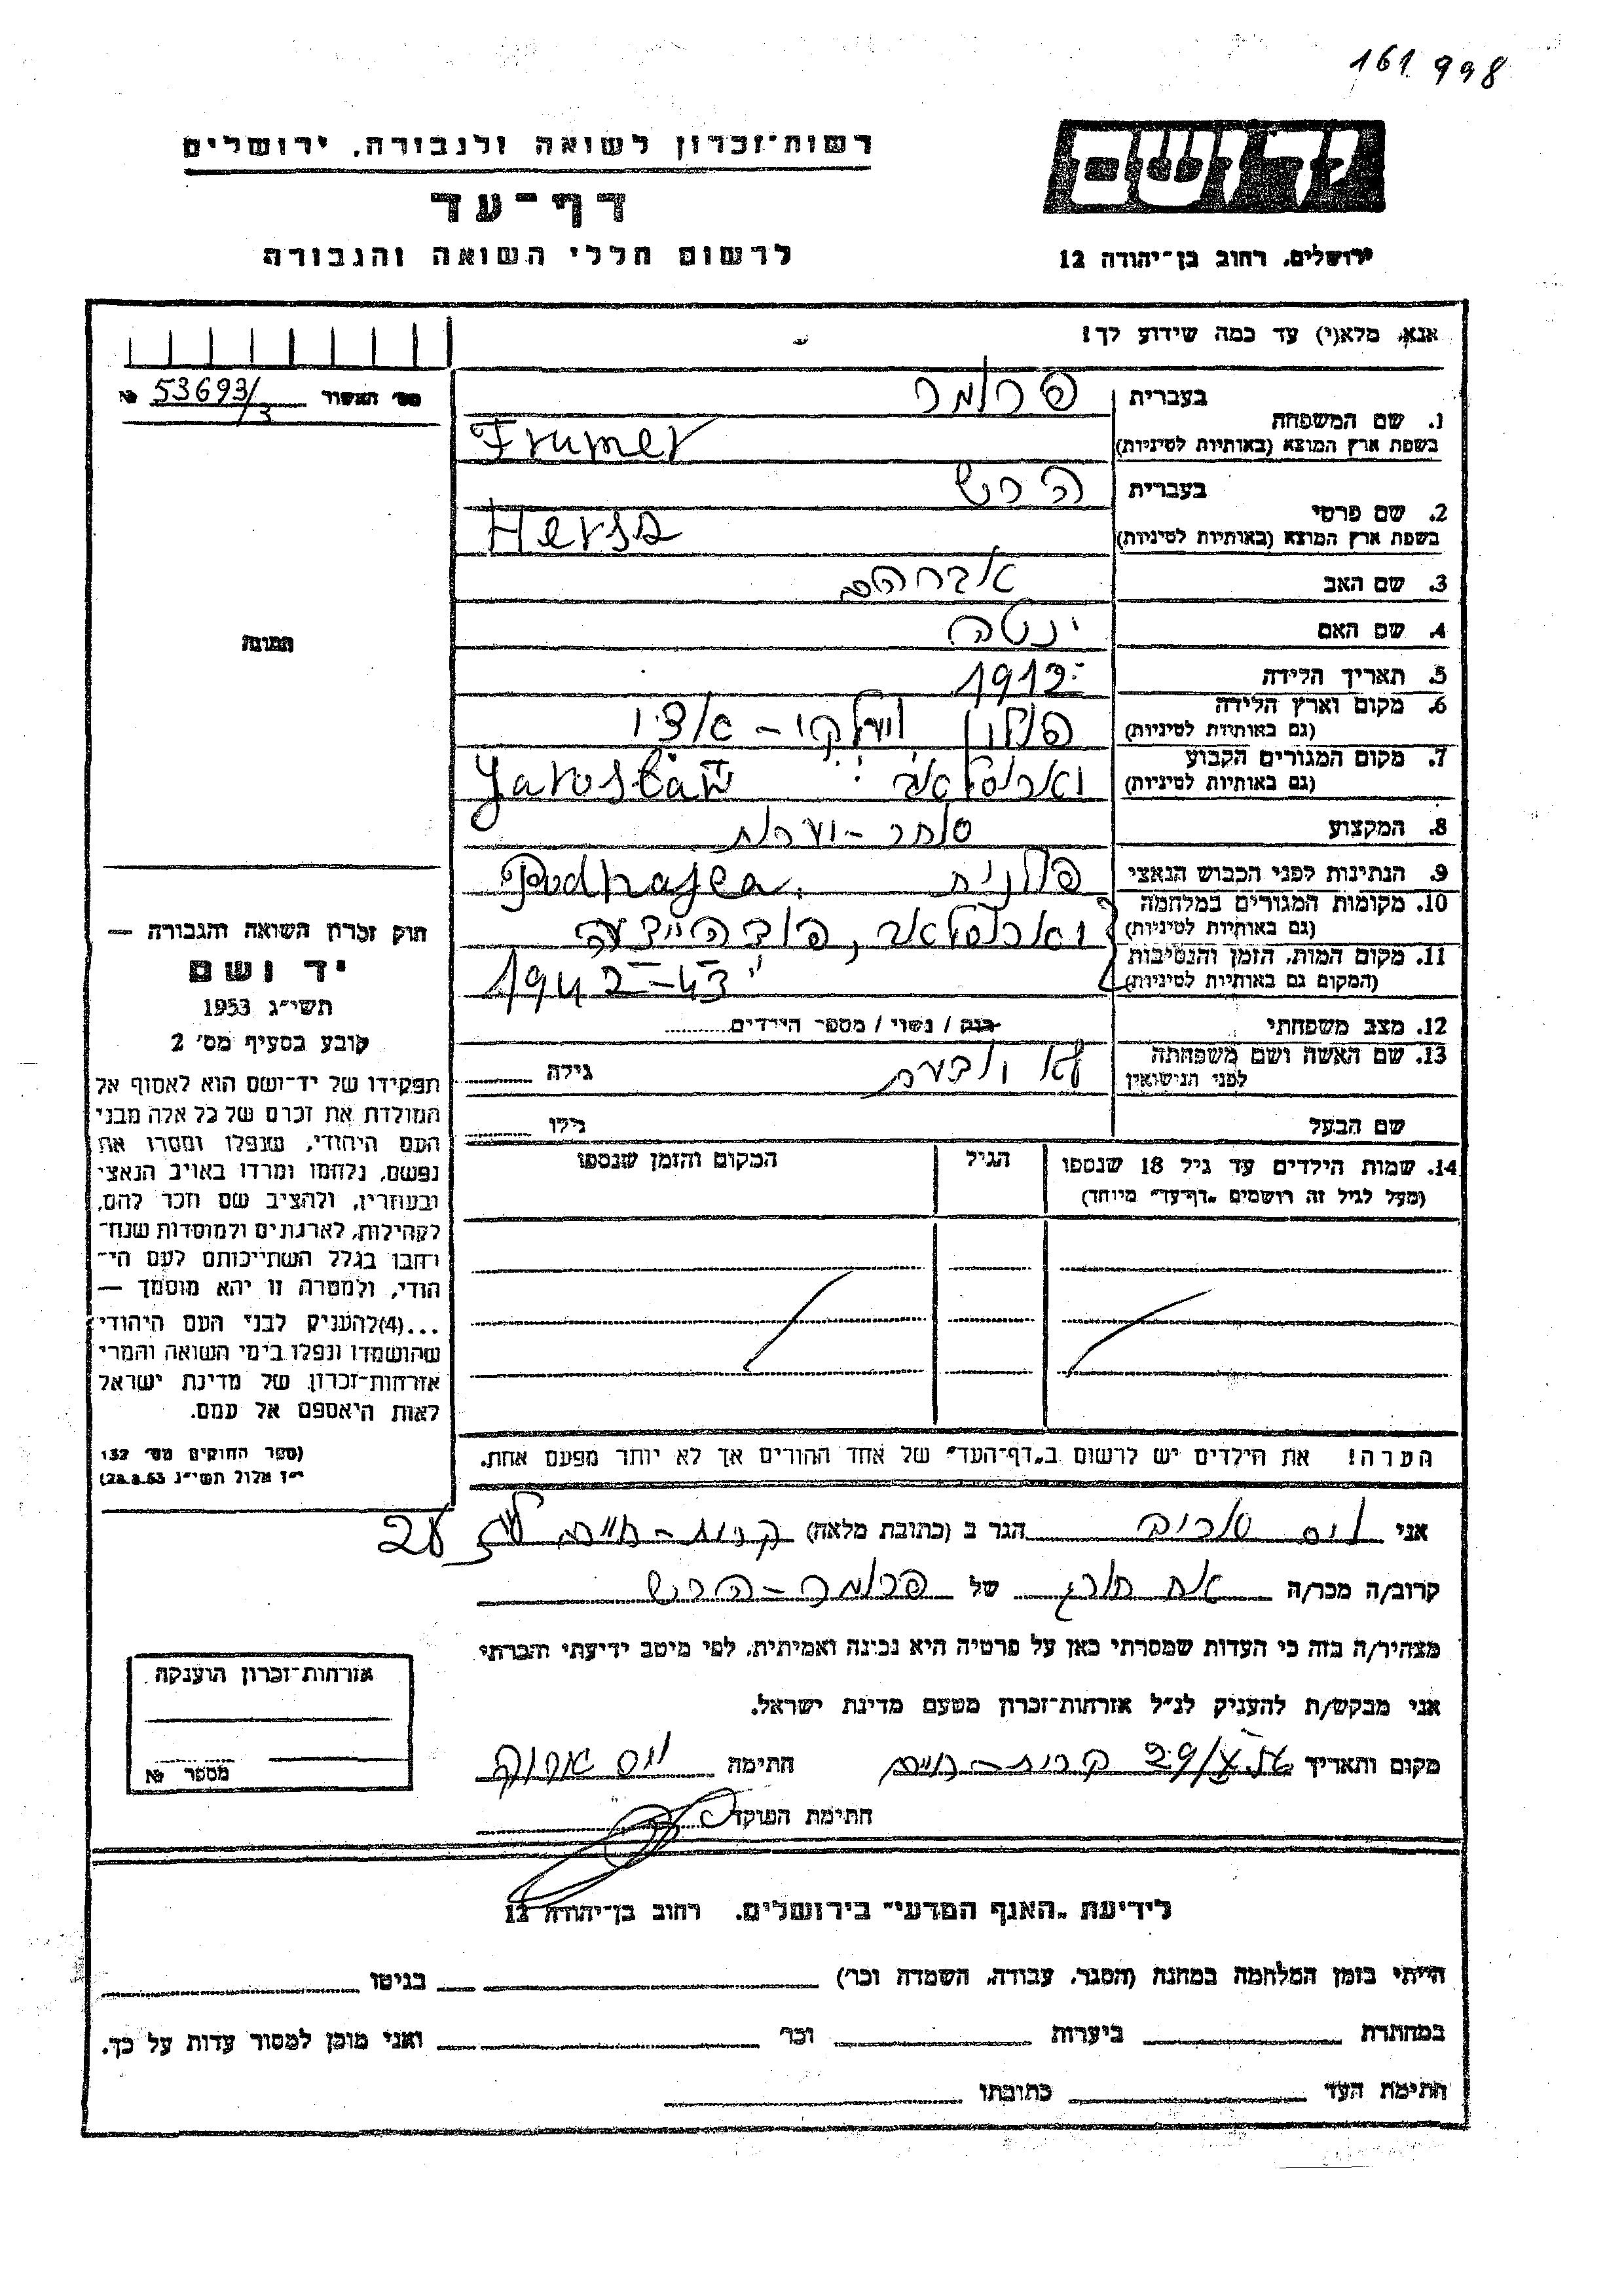 161998
רשות־זכרון לשואה ולגבורה, ירושלים
דף־עד
לרשום חללי השואה והגבורה
יד ושם
ירושלים, רחוב בן־יהודה 12
אנא, מלא(י) עד כמה שידוע לך!
מס׳ האשור № 53693/3
1. שם המשפחה בעברית פרומר
בשפת ארץ המוצא (באותיות לטיניות) Frumer
2. שם פרטי בעברית הרש
בשפת ארץ המוצא (באותיות לטיניות)
3. שם האב אברהם
4. שם האם ינטה
5. תאריך הלידה 1912
6. מקום וארץ הלידה (גם באותיות לטיניות) פולין
7. מקום המגורים הקבוע (גם באותיות לטיניות) יארוסלאב Yarosław
8. המקצוע סוחר -
9. הנתינות לפני הכבוש הנאצי פולנית Podhajca.
10. מקומות המגורים במלחמה (גם באותיות לטיניות) יארוסלאב,
11. מקום המות, הזמן והנסיבות (המקום גם באותיות לטיניות) 1942-43
12. מצב משפחתי רווק / נשוי / מספר הילדים
13. שם האשה ושם משפחתה לפני הנישואין לא גילה
שם הבעל גילו
14. שמות הילדים עד גיל 18 שנספו (מעל לגיל זה רושמים „דף־עד״ מיוחד) הגיל המקום והזמן שנספו
הערה! את הילדים יש לרשום ב„דף־העד״ של אחד ההורים אך לא יותר מפעם אחת.
תמונה
חוק זכרון השואה והגבורה —
יד ושם
תשי״ג 1953
קובע בסעיף מס׳ 2
תפקידו של יד־ושם הוא לאסוף אל
המולדת את זכרם של כל אלה מבני
העם היהודי, שנפלו ומסרו את
נפשם, נלחמו ומרדו באויב הנאצי
ובעוזריו, ולהציב שם וזכר להם,
לקהילות, לארגונים ולמוסדות שנח־
רבו בגלל השתייכותם לעם הי־
הודי, ולמטרה זו יהא מוסמך —
...(4)להעניק לבני העם היהודי
שהושמדו ונפלו בימי השואה והמרי
אזרחות־זכרון של מדינת ישראל
לאות היאספם אל עמם.
(ספר החוקים מס׳ 132
י״ז אלול תשי״ג 28.8.53)
אני הגר ב (כתובת מלאה) קרית-חיים 28
קרוב/ה מכר/ה אח חורג של פרומר-הרש
מצהיר/ה בזה כי העדות שמסרתי כאן על פרטיה היא נכונה ואמיתית, לפי מיטב ידיעתי והכרתי
אני מבקש/ת להעניק לנ״ל אזרחות־זכרון מטעם מדינת ישראל.
מקום ותאריך קרית-חיים 29/X חתימה
חתימת הפוקד
אזרחות־זכרון הוענקה
מספר №
לידיעת „האגף המדעי״ בירושלים, רחוב בן־יהודה 12
הייתי בזמן המלחמה במחנה (הסגר, עבודה, השמדה וכו׳) בגיטו
במחתרת ביערות וכו׳ ואני מוכן למסור עדות על כך.
חתימת העד כתובתו